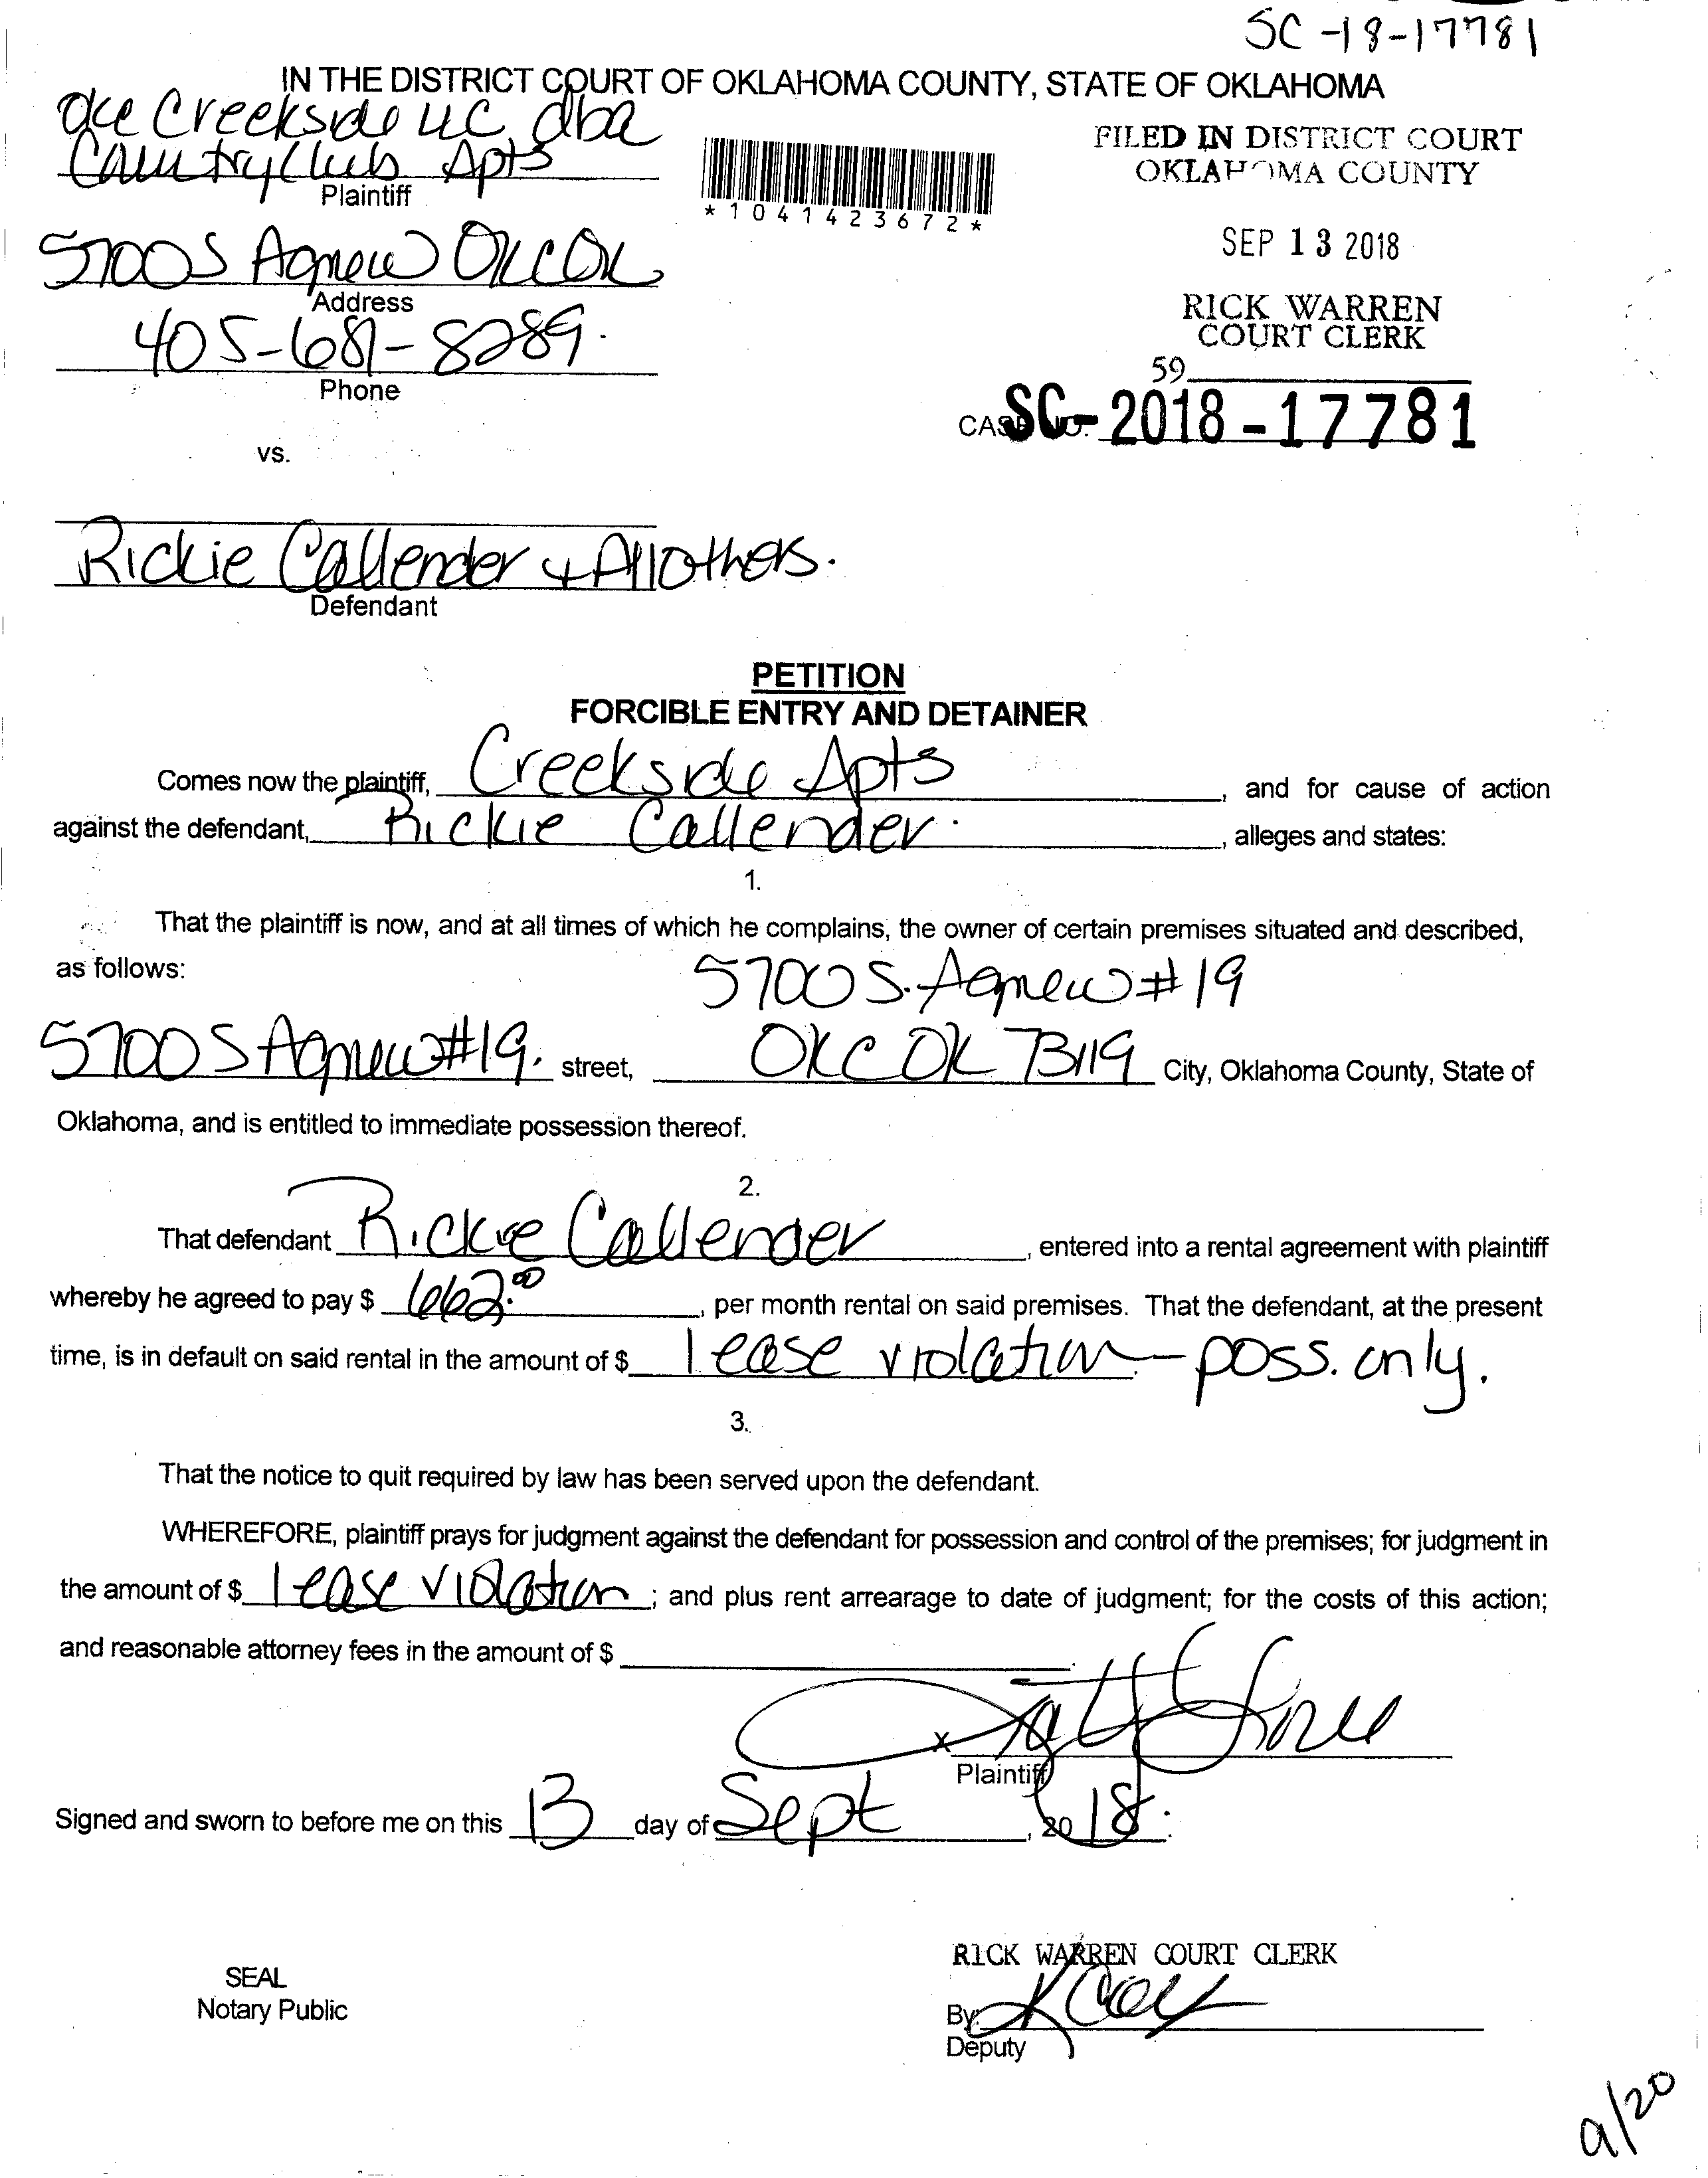 SC-18-17781
IN THE DISTRICT COURT OF OKLAHOMA COUNTY, STATE OF OKLAHOMA
Creekside LLC dba
Country Club Apts
Plaintiff
FILED IN DISTRICT COURT
OKLAHOMA COUNTY
*1041423672*
SEP 13 2018
5700 S Agnew OKC OK
Address
RICK WARREN
COURT CLERK
405-681-8289.
Phone
59
CASE NO. SC-2018-17781
vs.
Rickie Callender + All Others.
Defendant
PETITION
FORCIBLE ENTRY AND DETAINER
Comes now the plaintiff, Creekside Apts, and for cause of action
against the defendant, Rickie Callender, alleges and states:
1.
That the plaintiff is now, and at all times of which he complains, the owner of certain premises situated and described,
as follows: 5700 S. Agnew #19
5700 S Agnew #19. street, OKC OK 73119 City, Oklahoma County, State of
Oklahoma, and is entitled to immediate possession thereof.
2.
That defendant Rickie Callender, entered into a rental agreement with plaintiff
whereby he agreed to pay $ 662.00, per month rental on said premises. That the defendant, at the present
time, is in default on said rental in the amount of $ lease violation - poss. only.
3.
That the notice to quit required by law has been served upon the defendant.
WHEREFORE, plaintiff prays for judgment against the defendant for possession and control of the premises; for judgment in
the amount of $ lease violation; and plus rent arrearage to date of judgment; for the costs of this action;
and reasonable attorney fees in the amount of $
x
Plaintiff
Signed and sworn to before me on this 13 day of Sept, 2018.
RICK WARREN COURT CLERK
SEAL
Notary Public
By:
Deputy
9/20